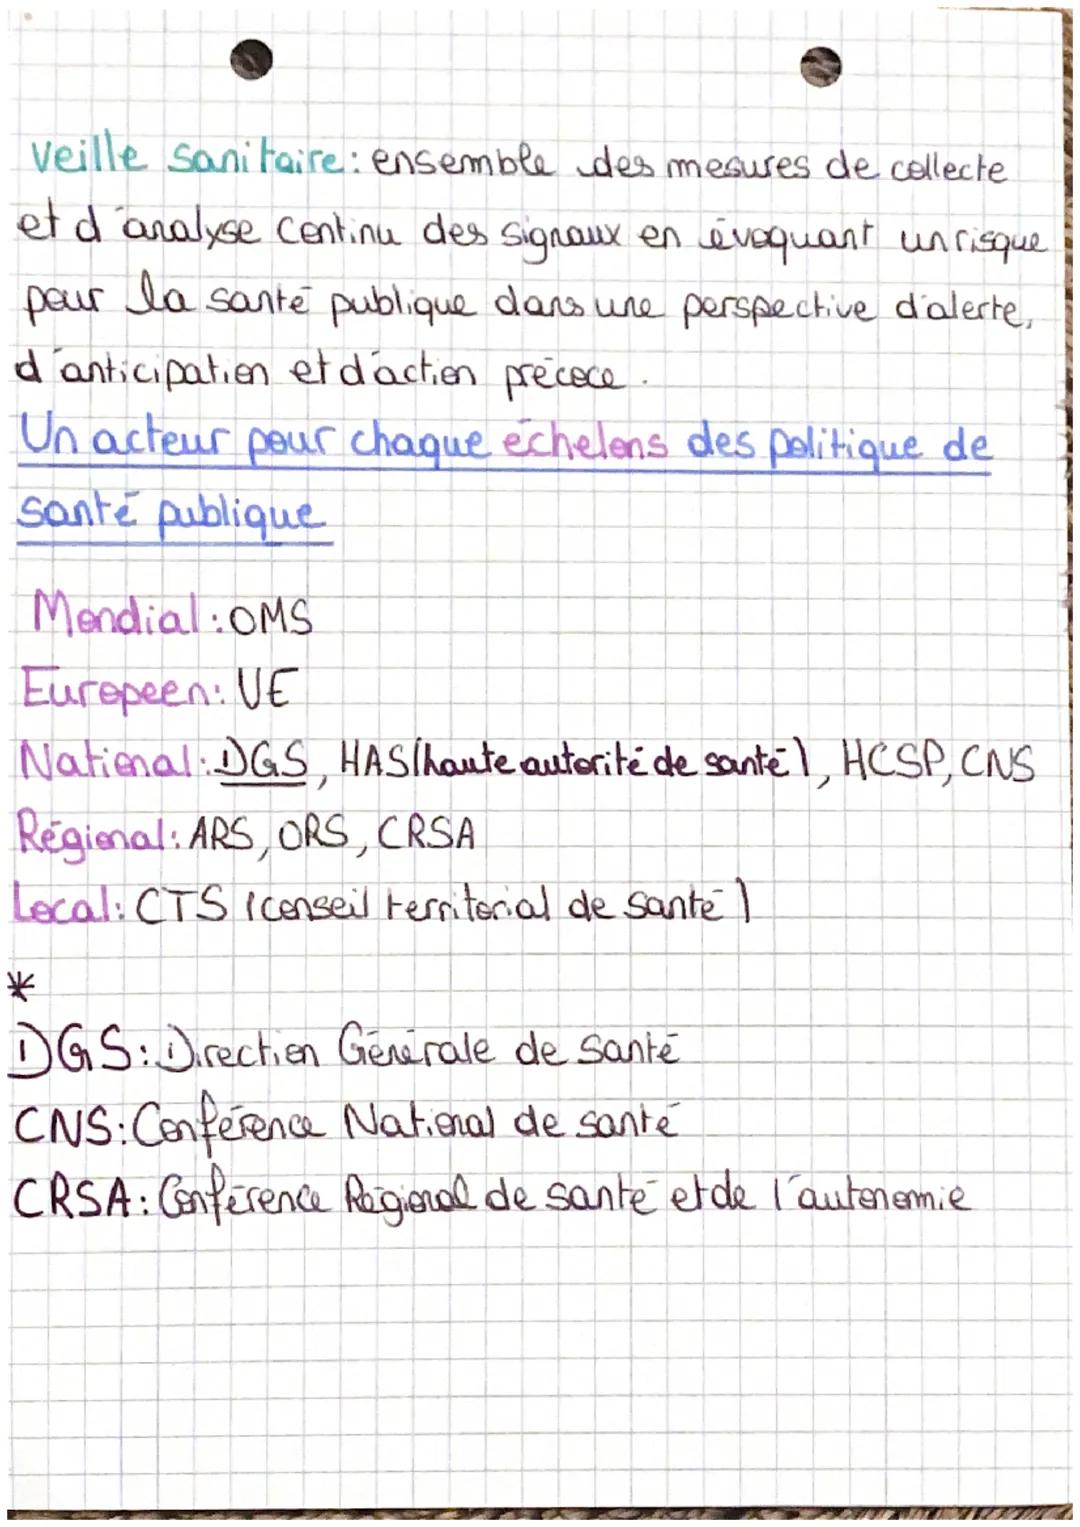 Veille sanitaire: ensemble des mesures de collecte
et d'analyse continu des signaux en évoquant un risque
pour la santé publique dans une perspective d'alerte,
d'anticipation et d'action précoce.
Un acteur pour chaque échelons des politique de
santé publique
Mondial: OMS
Europeen: UE
National: DGS, HAS (haute autorité de santé), HCSP, CNS
Régional: ARS, ORS, CRSA
Local: CTS (conseil territorial de santé)
*
DGS: Direction Générale de santé
CNS: Conférence National de santé
CRSA: Conférence Régional de santé et de l'autonomie